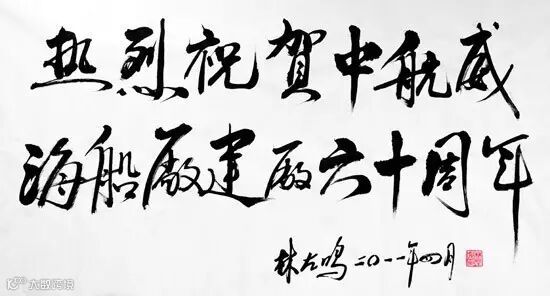 热烈祝贺中航威
海船厰建厰六十周年
林左鸣 二〇一一年四月
大国跨境